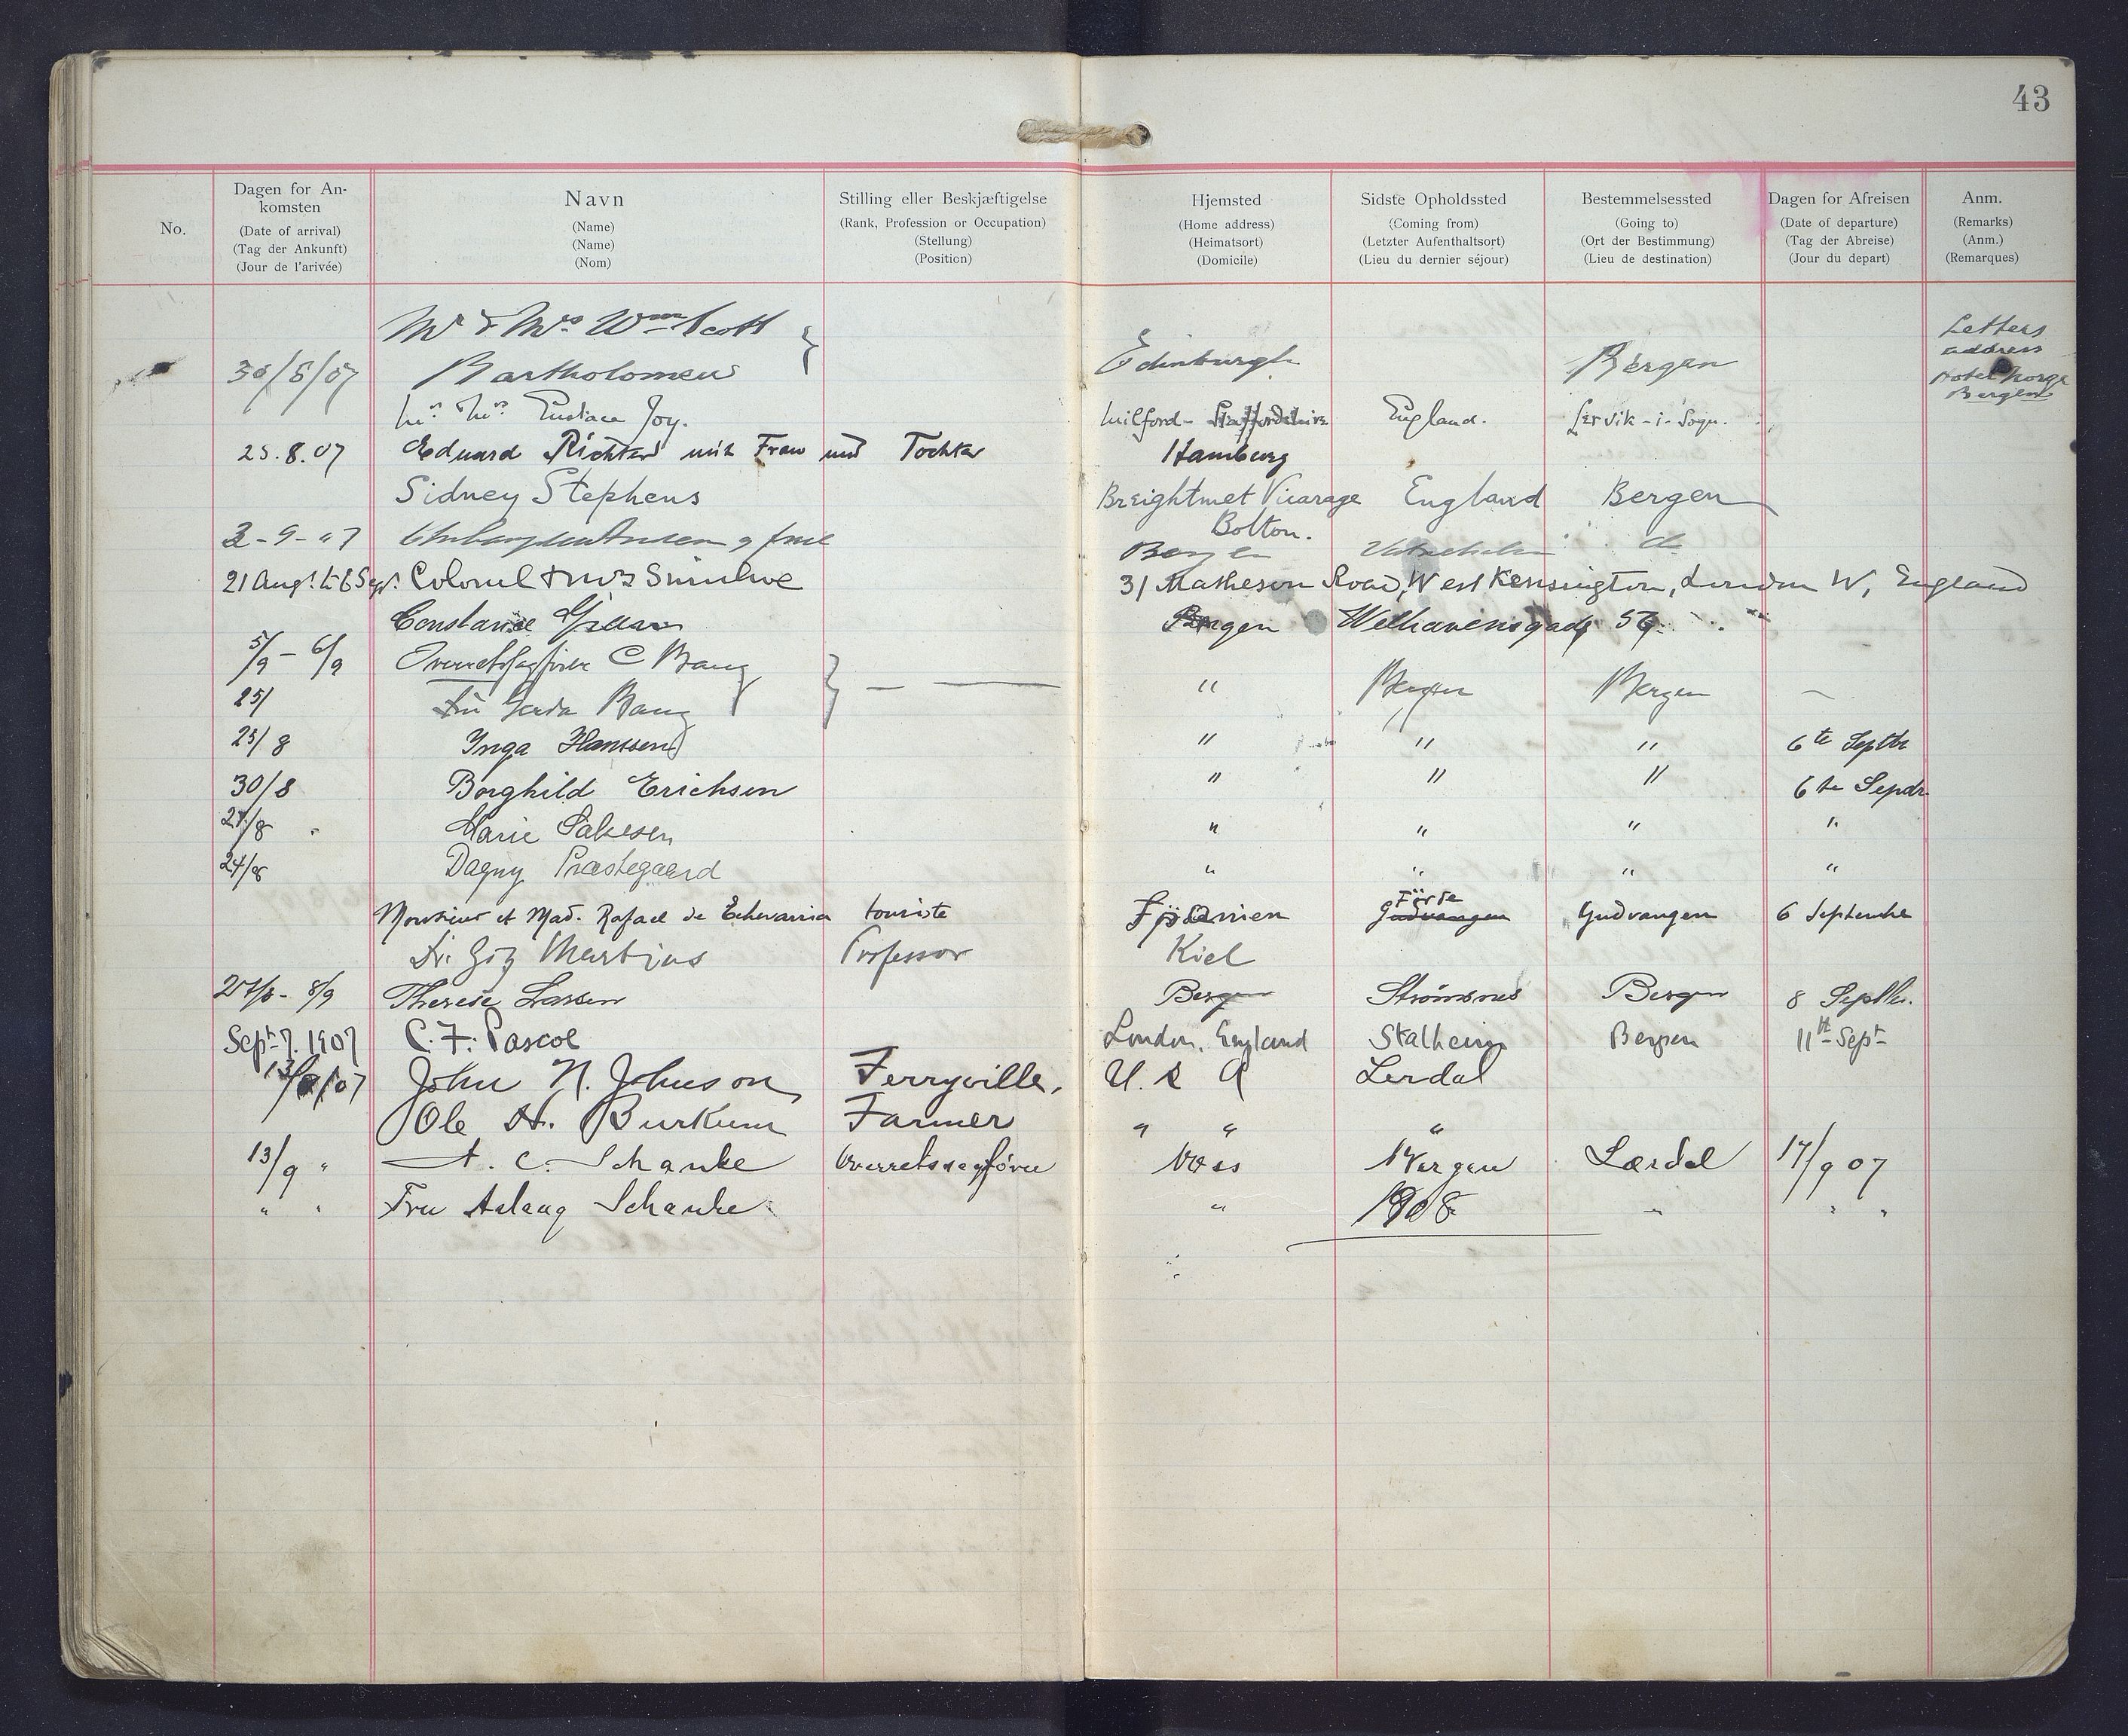 43
No.
Dagen for An-
komsten
(Date of arrival)
(Tag der Ankunft)
(Jour de l'arivée)
Navn
(Name)
(Name)
(Nom)
Stilling eller Beskjæftigelse
(Rank, Profession or Occupation)
(Stellung)
(Position)
Hjemsted
(Home address)
(Heimatsort)
(Domicile)
Sidste Opholdssted
(Coming from)
(Letzter Aufenthaltsort)
(Lieu du dernier séjour)
Bestemmelsessted
(Going to)
(Ort der Bestimmung)
(Lieu de destination)
Dagen for Afreisen
(Date of departure)
(Tag der Abreise)
(Jour du depart)
Anm.
(Remarks)
(Anm.)
(Remarques)
Mr & Mrs Wm Scott
30/8/07 Bartholomew Edinburgh Bergen Letters address Hotel Norge Bergen
Mr. Mrs. Eustace Joy. Milford - Staffordshire England. Lervik-i-Sogn.
25.8.07 Eduard Richter mit Frau und Tochter Hamburg
Sidney Stephens Breightmet Vicarage Bolton. England Bergen
2-9-07 Bergen do
21 Augt. to 6 Sept. Colonel & Mrs 31 Matheson Road, West Kensington, London W, England
Constance Bergen Welhavensgade
5/9 - 6/9 Overretssagfører C Bang
25/ Fru Gerda Bang " Bergen Bergen
25/8 Inga Hanssen " " " 6te Septbr
30/8 Borghild Erichsen " " " 6te Septbr.
27/8 Marie " " " "
24/8 Dagny Præstegaard " " " "
Monsieur et Mad. Rafael de Echevarria touriste Spanien Förde Gudvangen Gudvangen 6 Septembre
Dr. Götz Martius Professor Kiel
27/8 - 8/9 Therese Larsen Bergen Strömsnes Bergen 8 Septbr.
Sept. 7. 1907 C. F. Pascoe London, England Stalheim Bergen 11th Sept
13/9/07 John N. Johnson Ferryville, U. S A Lerdal
Ole H. Burkum Farmer " " "
13/9 " A. C. Schanke Overretssagfører Voss Bergen Lærdal 17/9 07
" " Fru Aslaug Schanke " " " "
1908